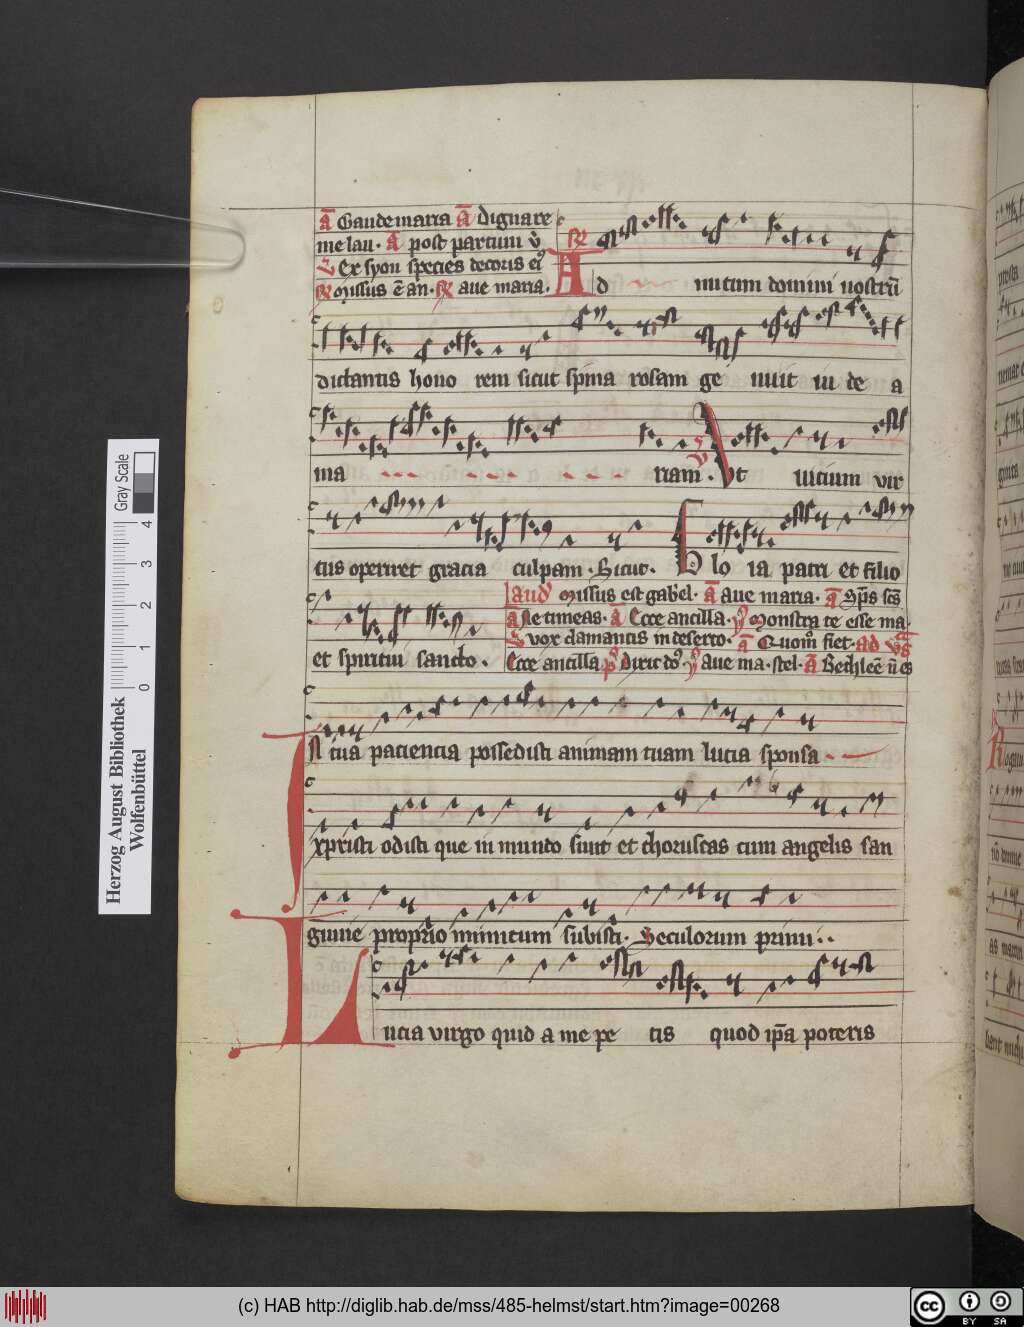 a̅ Gaude maria a̅ dignare
me lau. a̅ post partum v̾
Ex syon species decoris ei9
missus e̅ an. aue maria.
Ad nutum domini nostru̅
ditantis hono rem sicut spina rosam ge nuit iu de a
ma riam. Ut uicium vir
tus operiret gracia culpam. Sicut. Glo ia patri et filio
laud missus est gab'el. a̅ aue maria. a̅ Sp̅s sc̅s
a̅ Ne timeas. a̅ Ecce ancilla. monstra te esse ma
vox clamantis in deserto. a̅ Quom̅ fiet. ad
et spiritui sancto. Ecce ancilla dixit do9. Aue ma. stel. a̅ Bethlee̅
In tua paciencia possedisti animam tuam lucia sponsa
xpristi odisti que in mundo sunt et choruscas cum angelis san
guine proprio inimicum subisti. Seculorum primi..
Lucia virgo quid a me pe tis quod ip̅a poteris
Herzog August Bibliothek
Wolfenbüttel
Gray Scale
0 1 2 3 4
(c) HAB http://diglib.hab.de/mss/485-helmst/start.htm?image=00268
cc BY SA